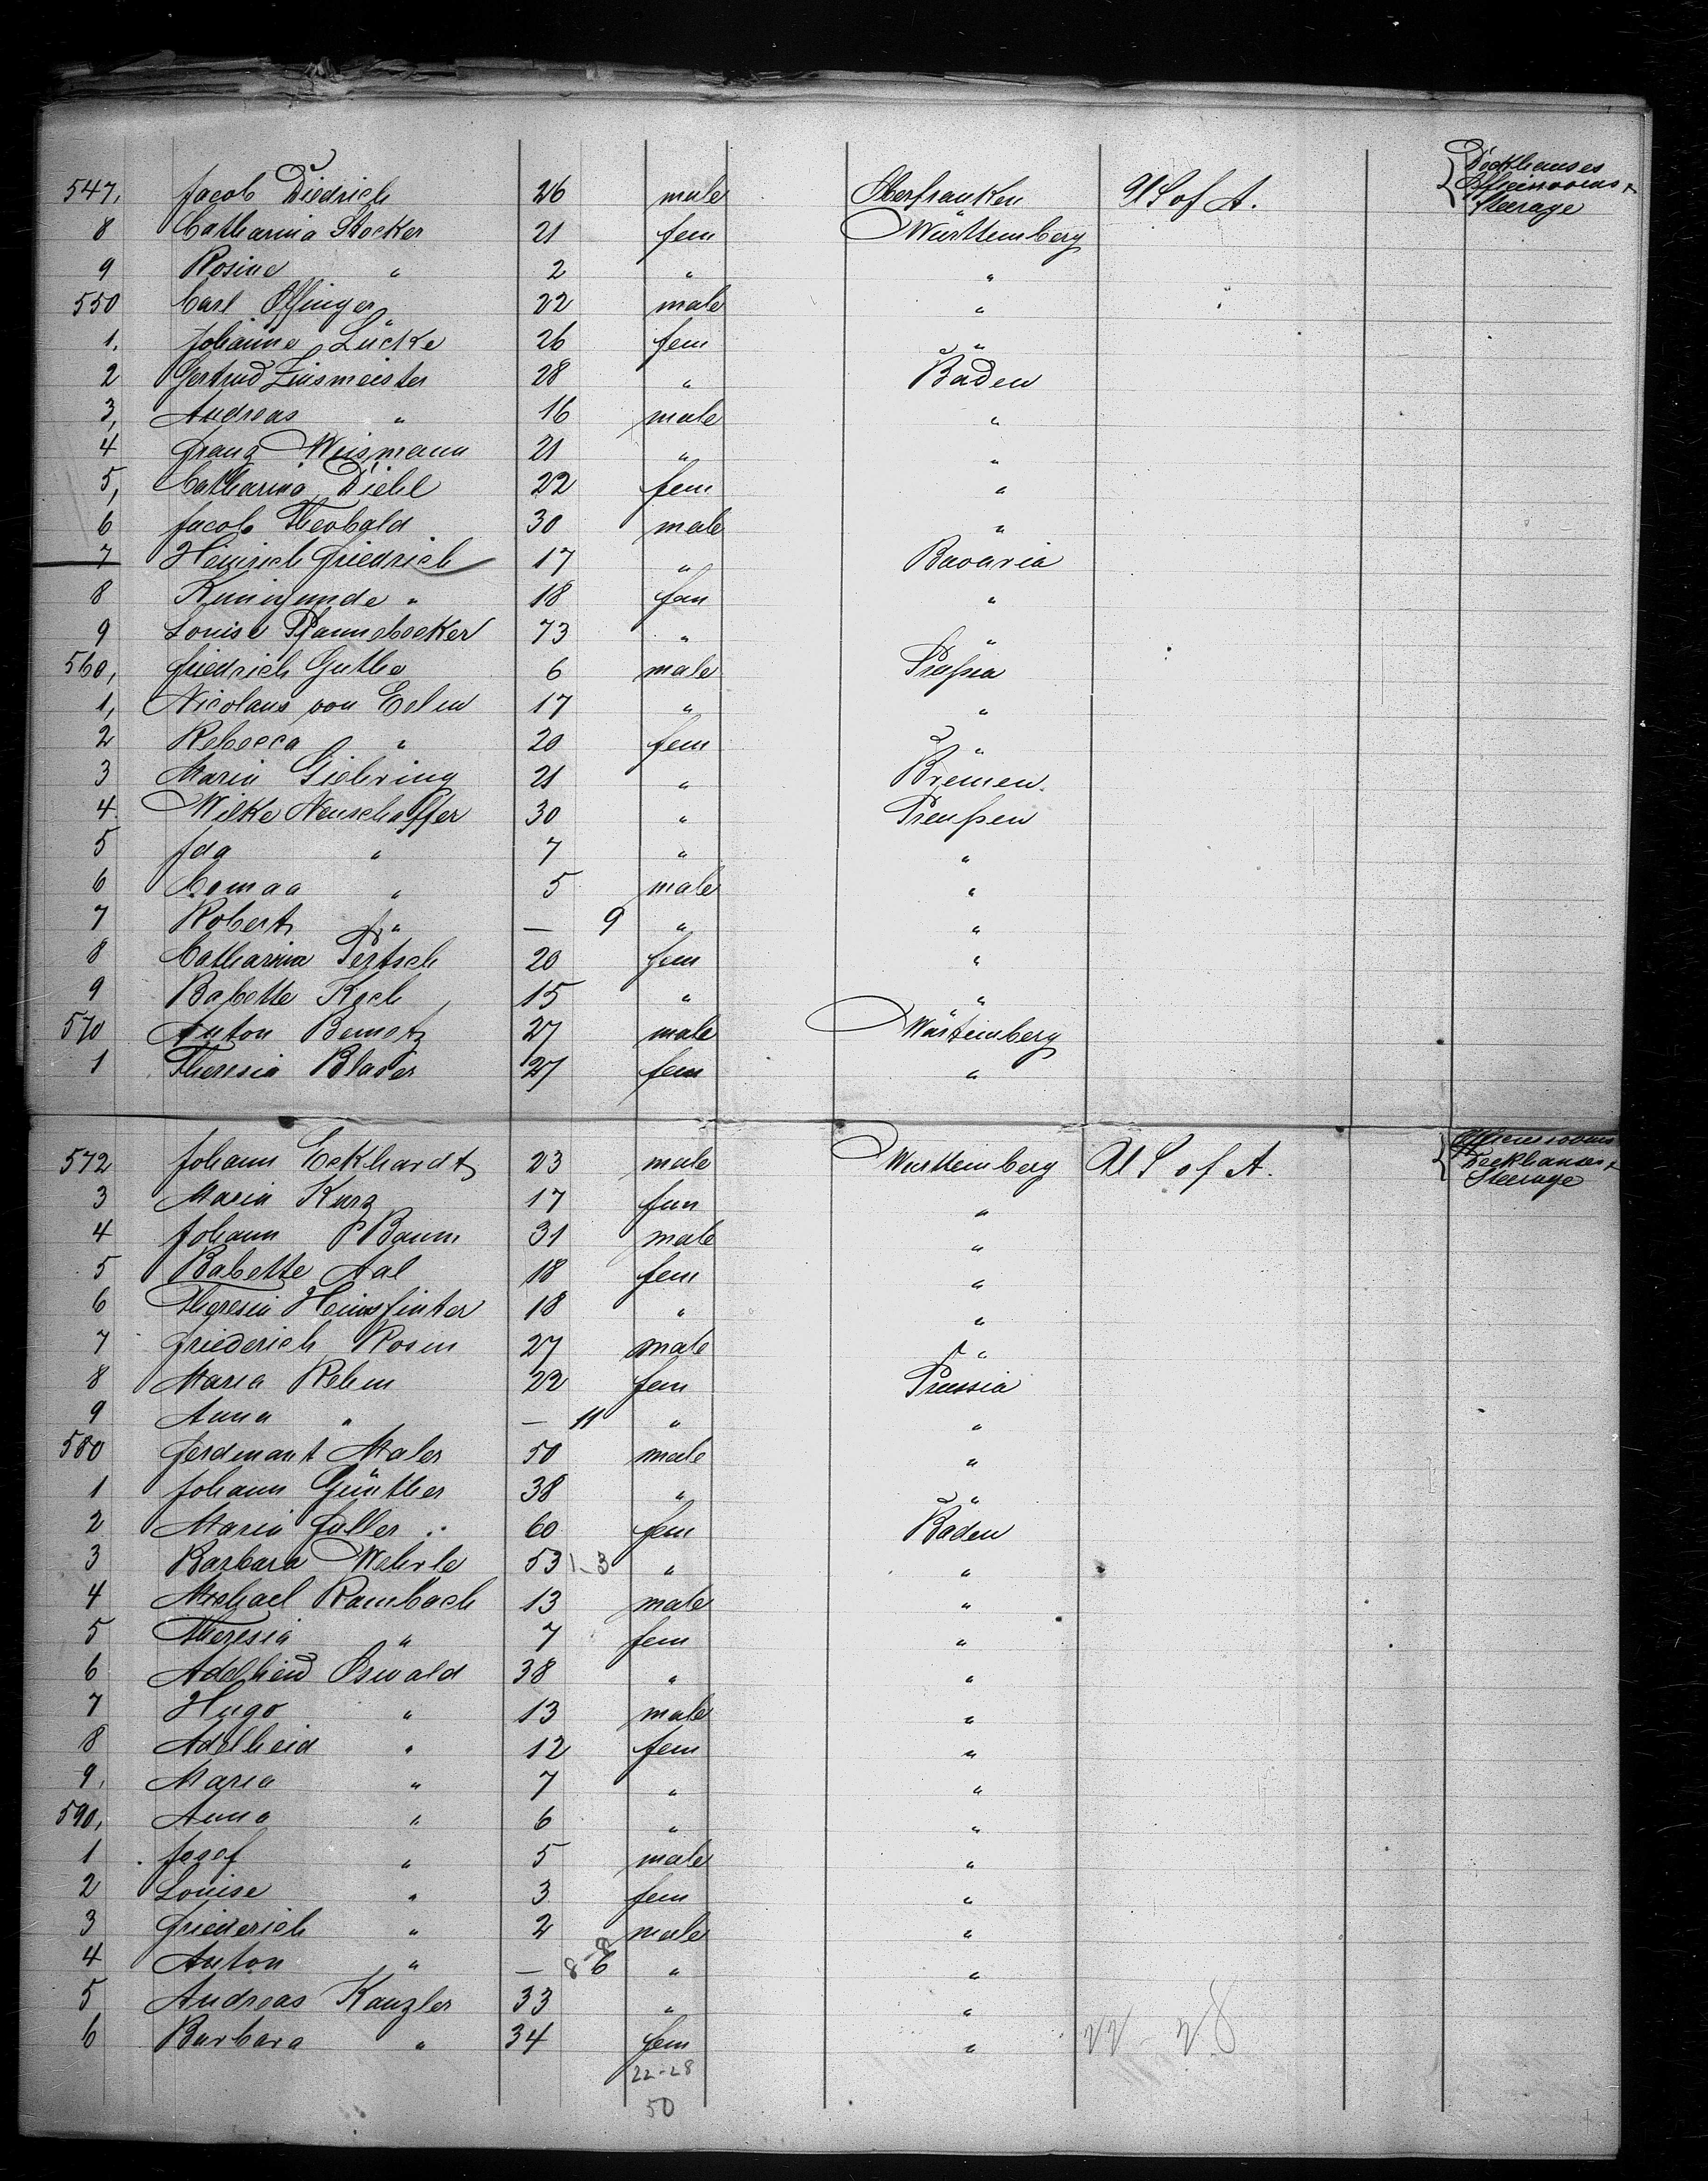 547, Jacob Diedrich 26 male Oberfranken U S of A. Deckhouses Officersrooms + Steerage
8 Catharina Stocker 21 fem Württemberg
9 Rosine " 2 " "
550 Carl Offinger 22 male "
1. Johanne Lücke 26 fem "
2 Gertrud Zinsmeister 28 " Baden
3, Andreas " 16 male "
4 Franz Weismann 21 " "
5, Catharina Diehl 22 fem "
6 Jacob Theobald 30 male "
7 Heinrich Friedrich 17 " Bavaria
8 Kunigunde " 18 fem "
9 Louise Pfannebecker 73 " "
560, Friedrich Guthe 6 male Prußia
1, Nicolaus von Eelen 17 " "
2 Rebecca " 20 fem "
3 Maria Giehring 21 " Bremen.
4. Wilke Neuschaffer 30 " Preußen
5 Ida " 7 " "
6 " 5 male "
7 Robert " — 9 " "
8 Catharina Pertsch 20 fem "
9 Babette Koch 15 " "
570 Anton Bemetz 27 male Würtemberg
1 Theresia Blaser 27 fem "
572 Johann Eckhardt 23 male Wurttemberg U S of A. Officersrooms Deckhouses + Steerage
3 Maria Kurz 17 fem "
4 Johann Baum 31 male "
5 Babette Aal 18 fem "
6 Theresia 18 " "
7 Friederich Rosin 27 male "
8 Maria Rehm 22 fem Prussia
9 Anna " — 11 " "
580 Ferdinant Maler 50 male "
1 Johann Günther 38 " "
2 Maria Fuller 60 fem Baden
3 Barbara Wehrle 53 3 " "
4 Michael Rambach 13 male "
5 Theresia " 7 fem "
6 Adelheid Oswald 38 " "
7 Hugo " 13 male "
8 Adelheid " 12 fem "
9, Maria " 7 " "
590, Anna " 6 " "
1 Josef " 5 male "
2 Louise " 3 fem "
3 Friederich " 2 male "
4 Anton " — 6 " "
5 Andreas Kanzler 33 " "
6 Barbara " 34 fem "
22-28
50